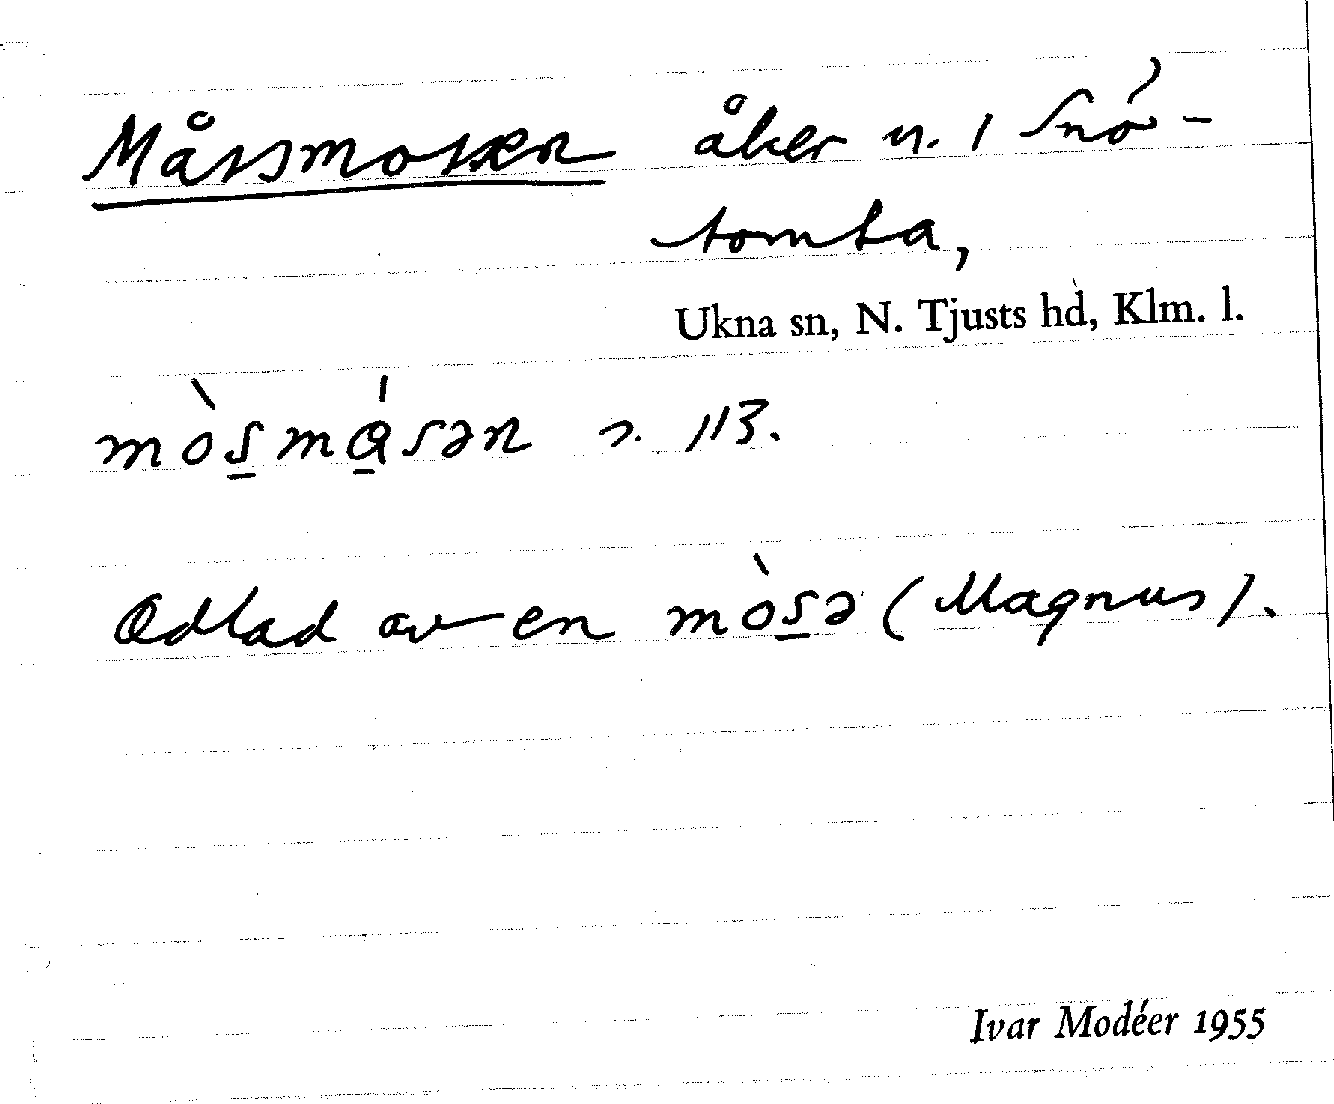 Måssmossen åker n. 1 Snö-
tomta,
Ukna sn, N. Tjusts hd, Klm. l.
mòs̠mɑ̠́sən s. 113.
Odlad av en mòs̠ə (Magnus).
Ivar Modéer 1955